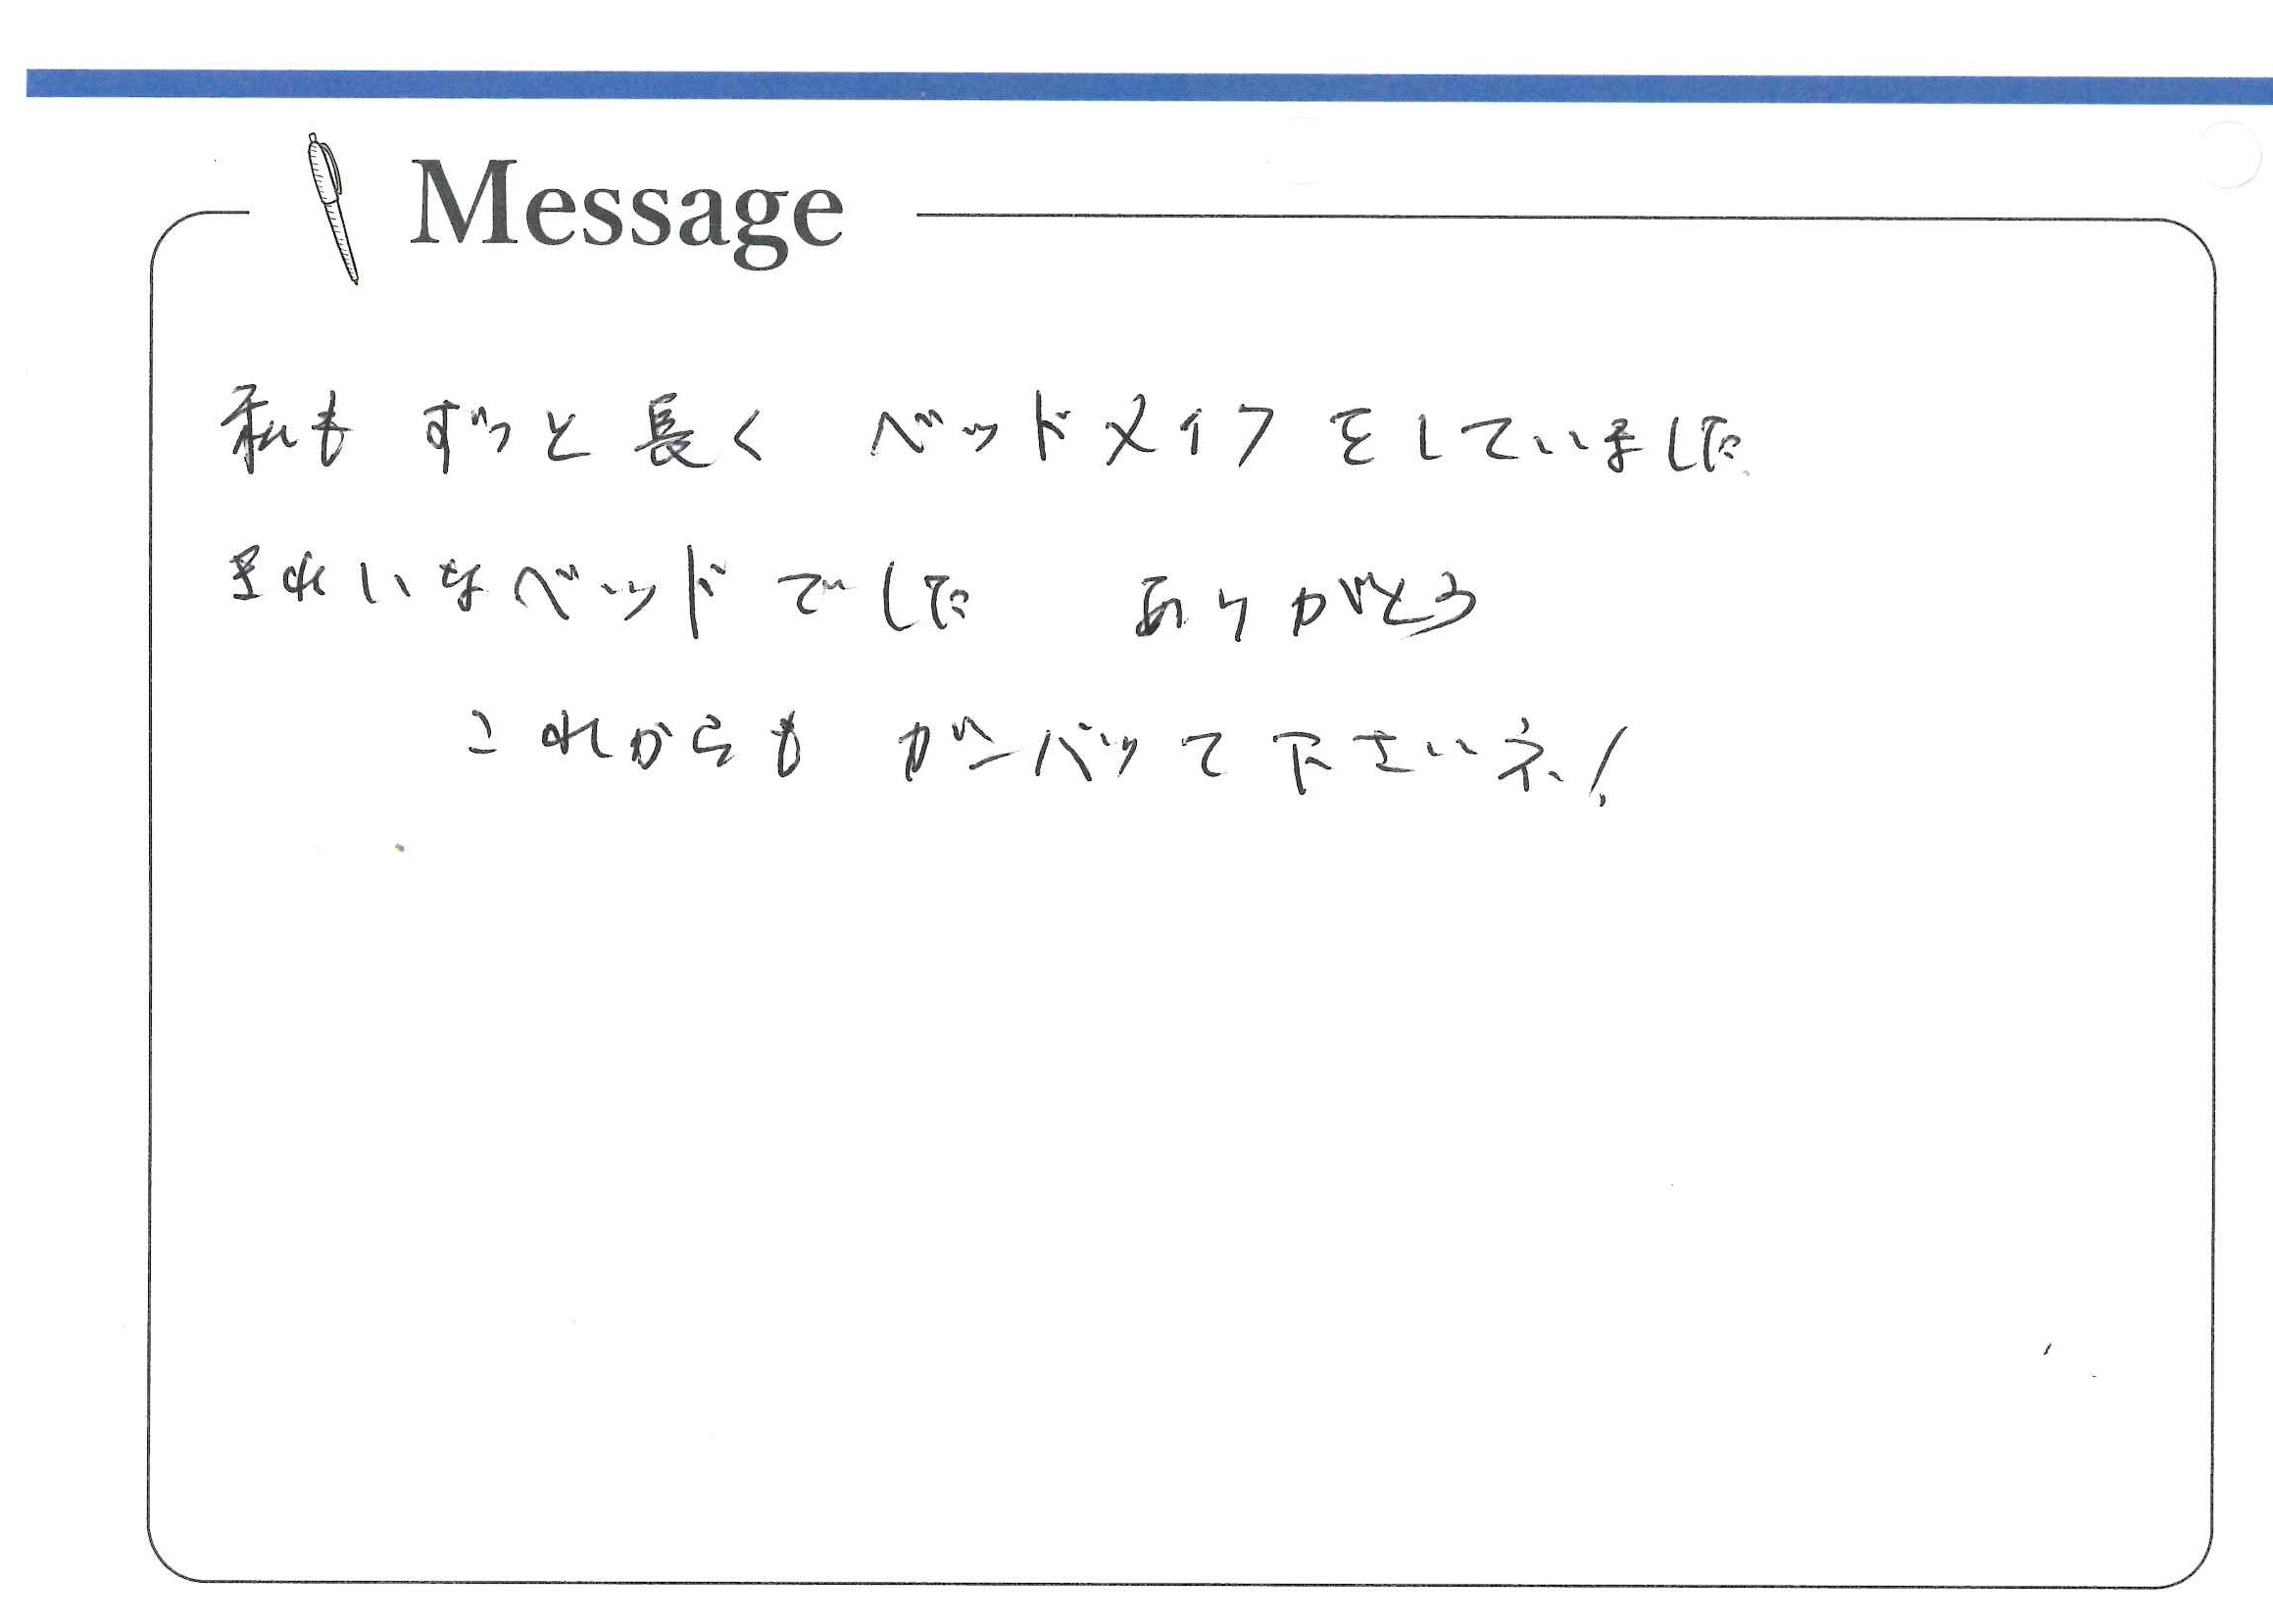 Message
私も ずっと 長く ベッドメイクをしていました
きれいなベッドでした ありがとう
これからも ガンバッて下さいネ!